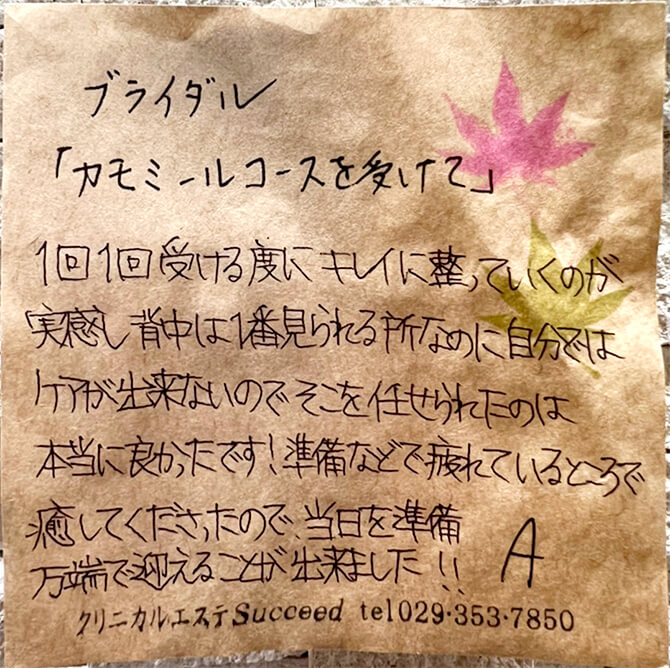 ブライダル
「カモミールコースを受けて」
1回1回受ける度にキレイに整っていくのが
実感し背中は1番見られる所なめに自分では
ケアが出来ないのでそこを任せられたのは
本当に良かったです!準備などで疲れているところで
癒してくださったので、当日を準備
万端で迎えることが出来ました!!
A
クリニカルエステSucceed tel029・353・7850